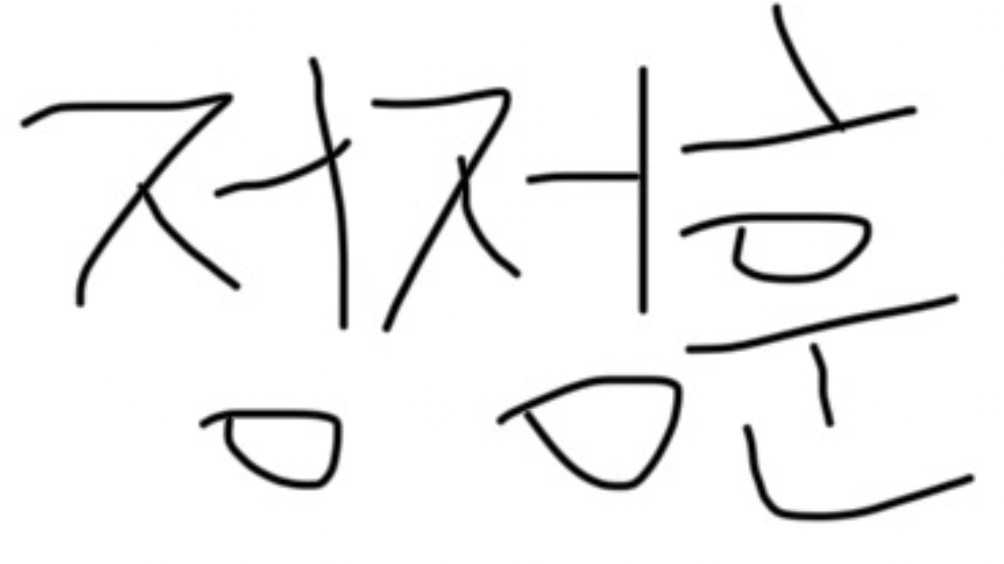 정정훈